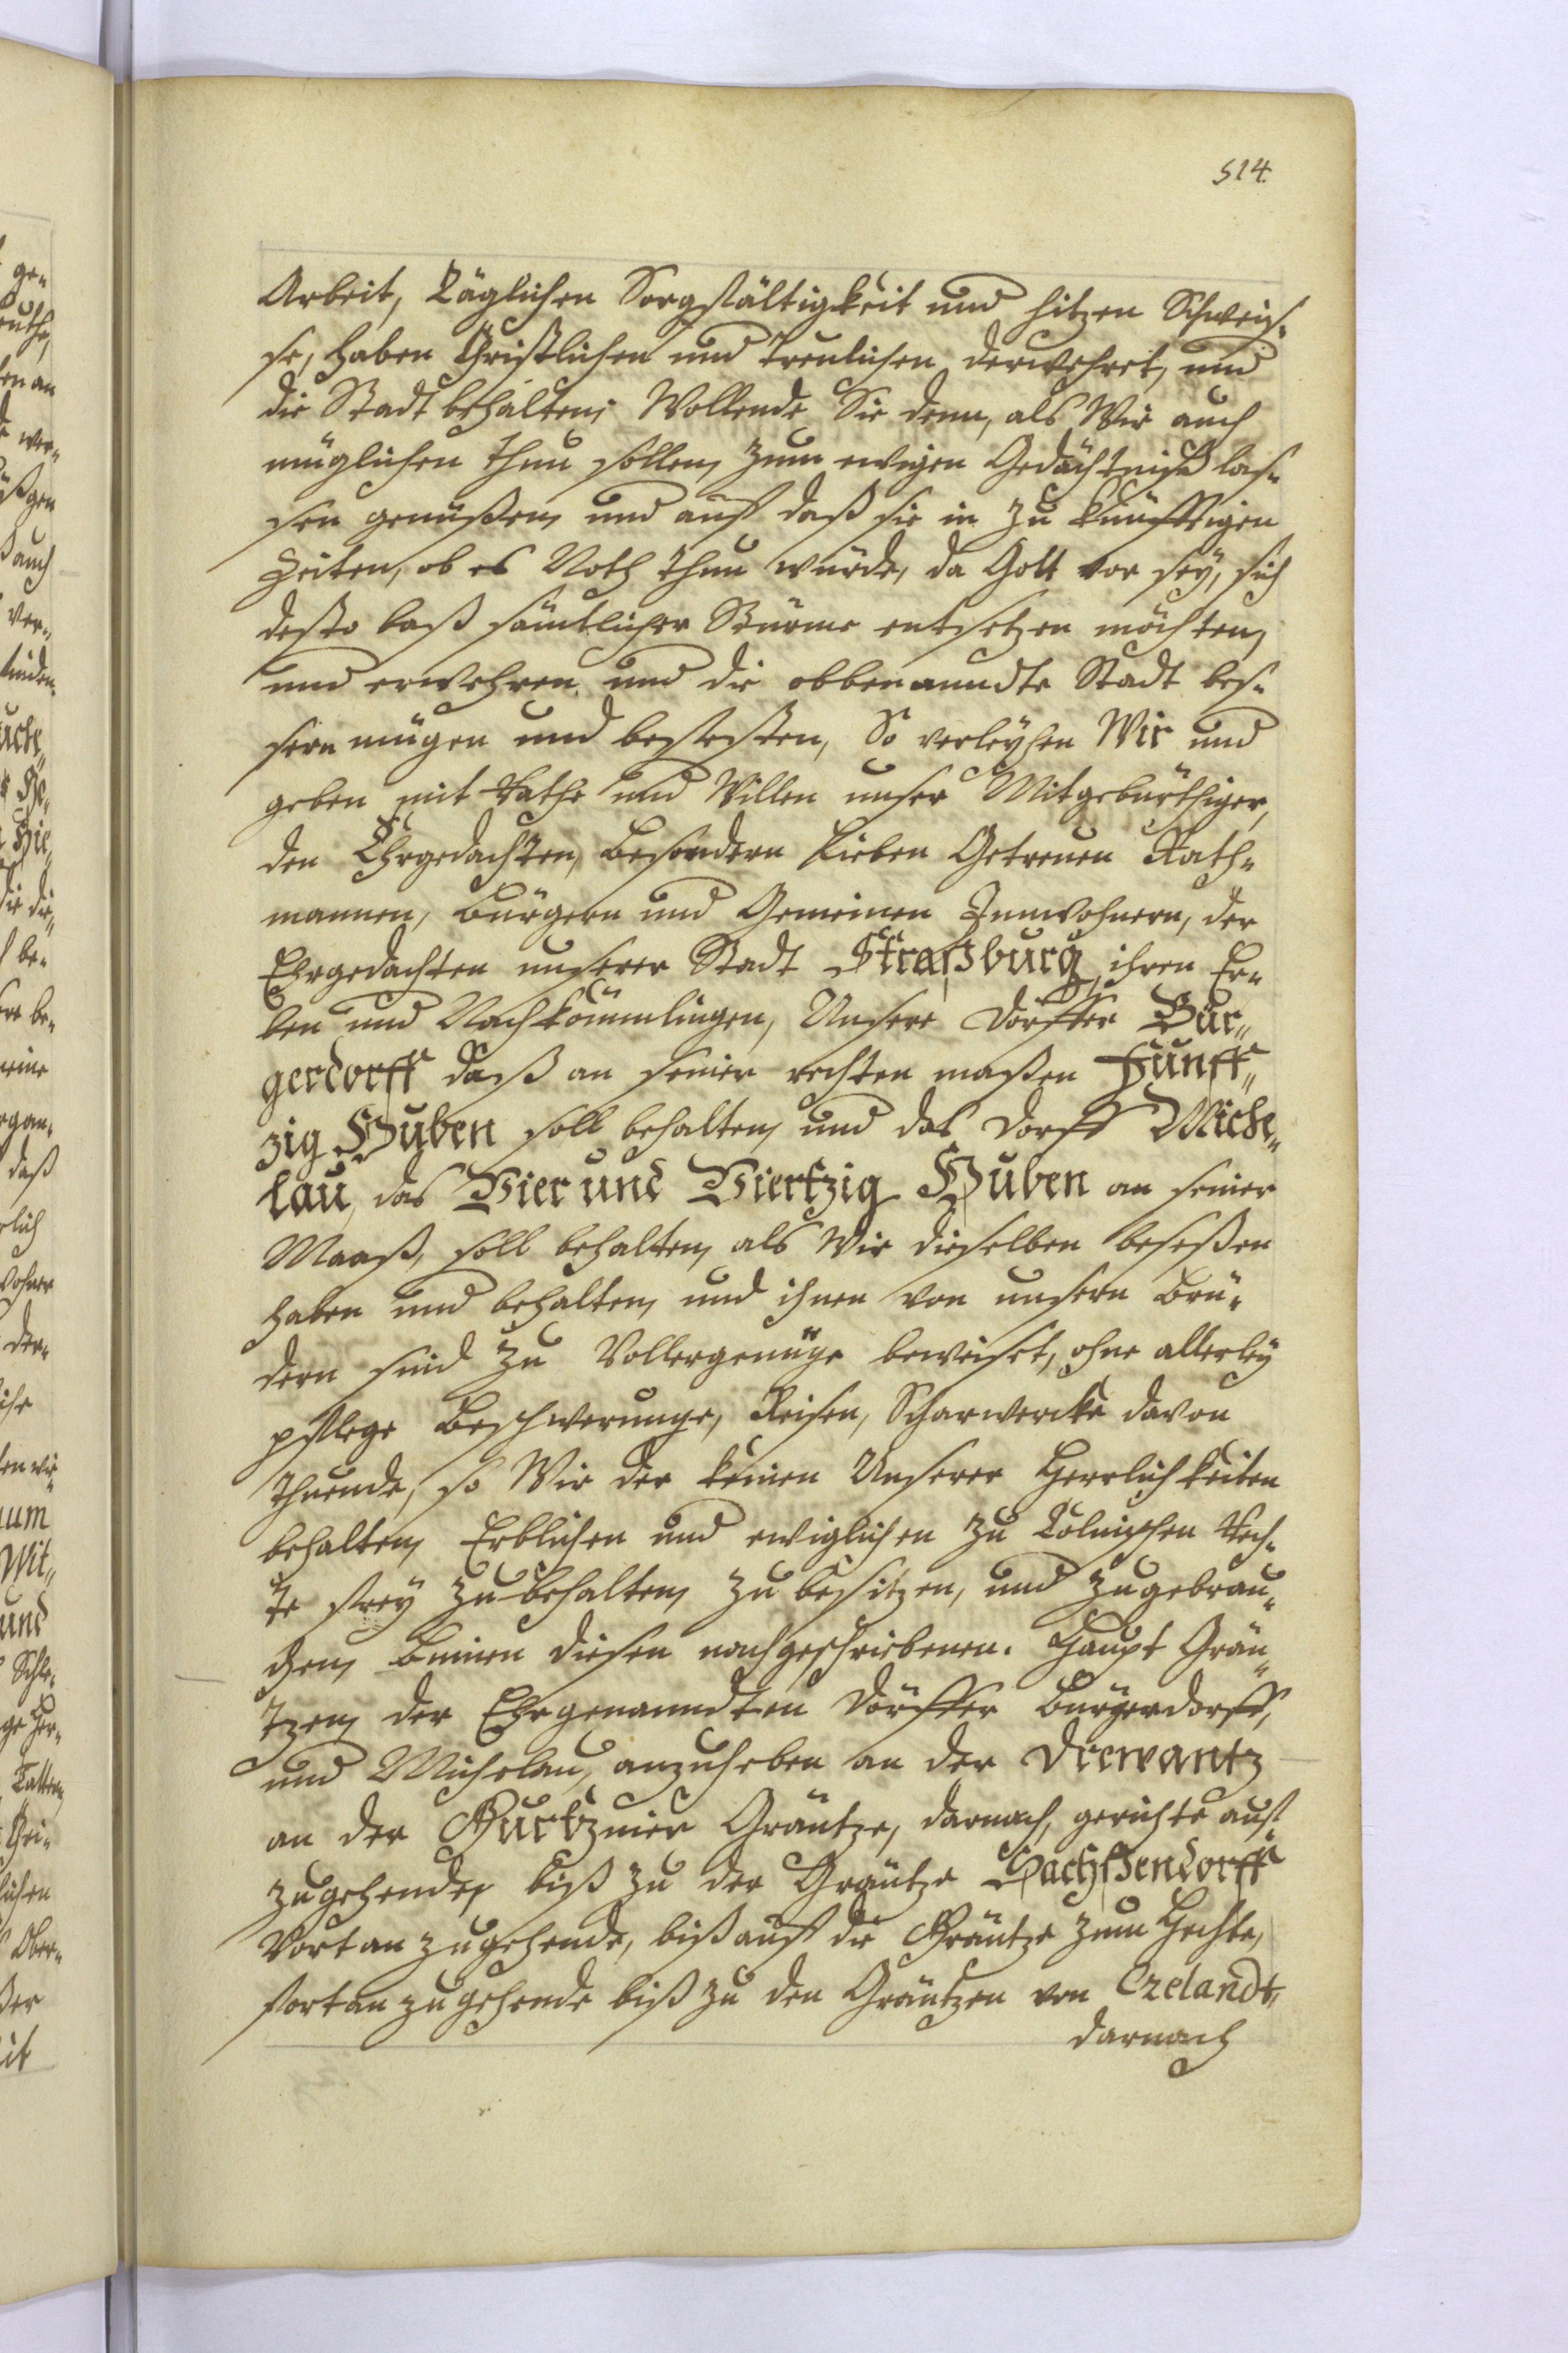 514.
Arbeit, Täglichen Sorgfältigkeit und hitzen Schweis-
se, haben Christlichen und Treulichen derwehret, und
die Stadt behalten, Wollende Sie denn, als Wir auch
müglichen thun sollen, zum ewigen Gedächtniß las-
sen genüßen, und auf daß sie in zu künfftigen
Zeiten, ob es Noth thun würde, da Gott vor sey, sich
desto baß sämtlicher Stürme entsetzen möchten,
und erwehren und die obbenanndte Stadt bes-
sern mügen und befesten, So verleyhen Wir und
geben mit Rathe und Willen unser Mitgebürthiger,
den Ehrgedachten, besondern Lieben Getreuen Rath-
mannen, Bürgern und Gemeinen Innwohnern, der
Ehrgedachten unserer Stadt Straßburg, ihren Er-
ben und Nachkömmlingen, Unsere Dörffer Bür-
gerdorff daß an seiner rechten maßen Fünff-
zig Huben soll behalten, und das Dorff Miche-
lau, das Vier und Viertzig Huben an seiner
Maaß, soll behalten, als Wir dieselben beseßen
haben und behalten, und ihnen von unsern Brü-
dern sind zu Vollergenüge beweiset, ohne allerley
pflege Beschwerunge, Reisen, Scharwercke davon
thuende, so Wir der keinen Unserer Herrlichkeiten
behalten, Erblichen und ewiglichen zu Cölmischen Rech-
te frey zu behalten, zu besitzen, und zugebrau-
chen, binnen diesen nachgeschriebenen. Haupt Grän-
tzen, der Ehrgenanndten Dörffer Bürgerdorff,
und Michelau, anzuheben an der Drewantz
an der Gurtznier Gräntze, darnach, gerichte auf
zugehende, biß zu der Gräntze Sachsendorff
Vortan zugehende, biß auf die Gräntze zum Hechte,
fortan zugehende biß zu den Gräntzen von Czelandt,
darnach